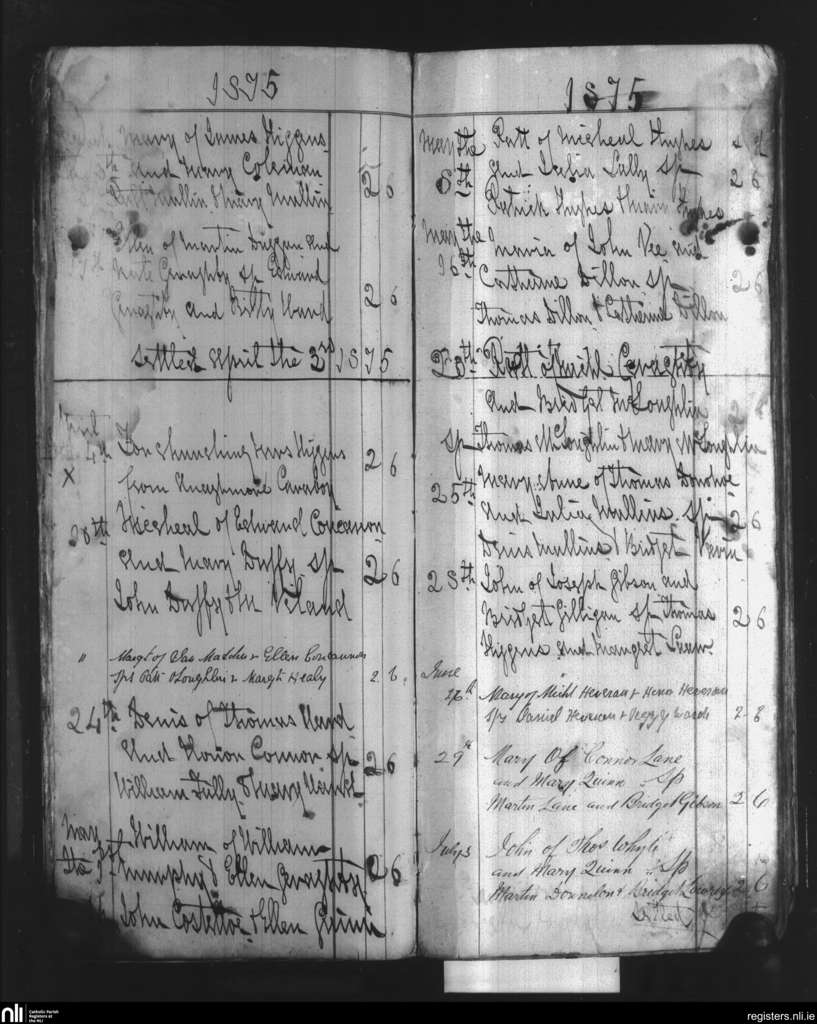 1875
Mary of James Higgins
And Mary Coleman
Patt Mullin & Mary Mullin
2 6
of Martin Duggan and
Kate Geraghty sp Edward
Geraghty and Kitty Ward
2 6
settled April the 3rd 1875
April
4th
For Churching Mrs Higgins
2 6
X
from
20th
Micheal of Edward Concannon
And Mary Duffy sp
2 6
John Duffy & M
" Margt of Jas Madden & Ellen Concannon
Sps Patt O'Loughlin & Margt Healy 2 6
24th Denis of Thomas Ward
And Honor Connor sp
2 6
William Tully & Mary
May
the 1st
William of William
Murphy & Ellen Geraghty
2 6
John Costelloe & Ellen Quinn
1875
May the
8th
Patt of Micheal Hynes
s d
And Julia Lally sp
2 6
Patrick Hynes & Hynes
May the
16th
Maria of John Vee and
Catherine Dillon sp
2 6
Thomas Dillon & Catherine Dillon
Patt of Michl Geraghty
And Bridget McLoughlin
sp Thomas McLoughlin & Mary McLoughlin
25th
Mary Anne of Thomas Donohoe
And Julia Mullins sp
2 6
Denis Mullins & Bridget
28th John of Joseph Gibson and
Bridget Gilligan sp Thomas
2 6
Higgins and Margret
June
26th Mary of Michl Heveran & Heveran
Sps Daniel Heveran & Peggy Ward 2 6
29th Mary Of Connor Lane
and Mary Quinn Sp
Martin Lane and Bridget Gibson 2 6
July 3 John of Thos Whyte
and Mary Quinn Sp
Martin & Bridget 2 6
Settled
nli
Catholic Parish
Registers at
the NLI
registers.nli.ie